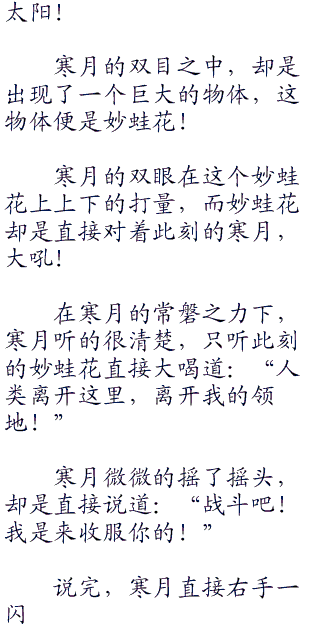 太阳！
寒月的双目之中，却是
出现了一个巨大的物体，这
物体便是妙蛙花！
寒月的双眼在这个妙蛙
花上上下下的打量，而妙蛙花
却是直接对着此刻的寒月，
大吼！
在寒月的常磐之力下，
寒月听的很清楚，只听此刻
的妙蛙花直接大喝道：“人
类离开这里，离开我的领
地！”
寒月微微的摇了摇头，
却是直接说道：“战斗吧！
我是来收服你的！”
说完，寒月直接右手一
闪